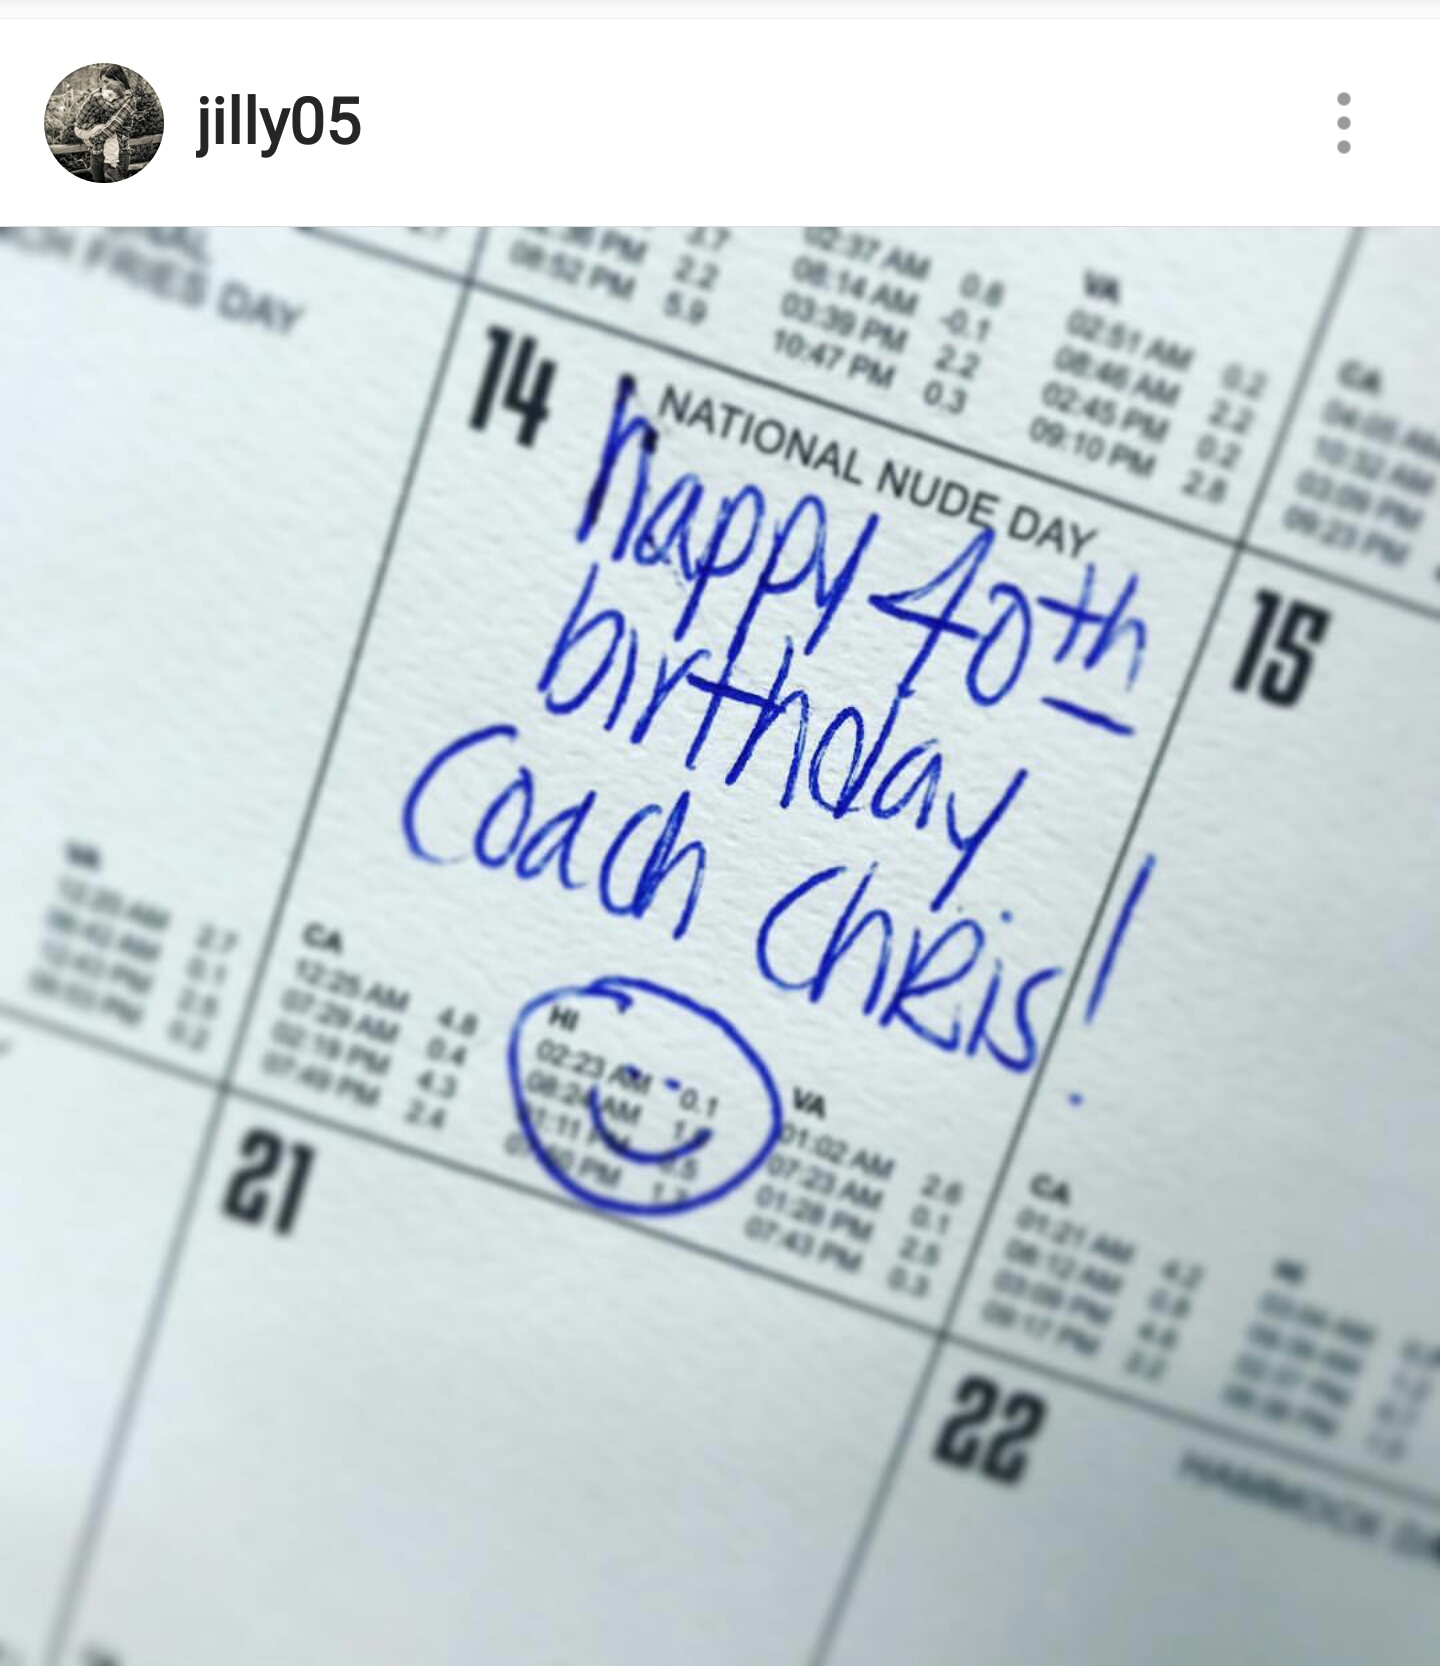 jilly05
FRIES DAY
08:52 PM 5.9
02:37 AM 0.8
08:14 AM -0.1
03:39 PM 2.2
10:47 PM 0.3
VA
02:51 AM 0.2
08:46 AM 2.2
02:45 PM 0.2
09:10 PM 2.8
CA
10:32 AM
03:09 PM
09:23 PM
14
NATIONAL NUDE DAY
happy 40th
birthday
Coach Chris!
15
VA
CA
12:25 AM 4.8
07:29 AM 0.4
02:19 PM 4.3
07:49 PM 2.4
HI
02:23 AM 0.1
08:24 AM
PM
PM
VA
01:02 AM 2.6
07:23 AM 0.1
01:28 PM 2.5
07:43 PM 0.3
CA
01:21 AM 4.2
08:12 AM
03:09 PM
09:17 PM
HI
21
22
HAMMOCK